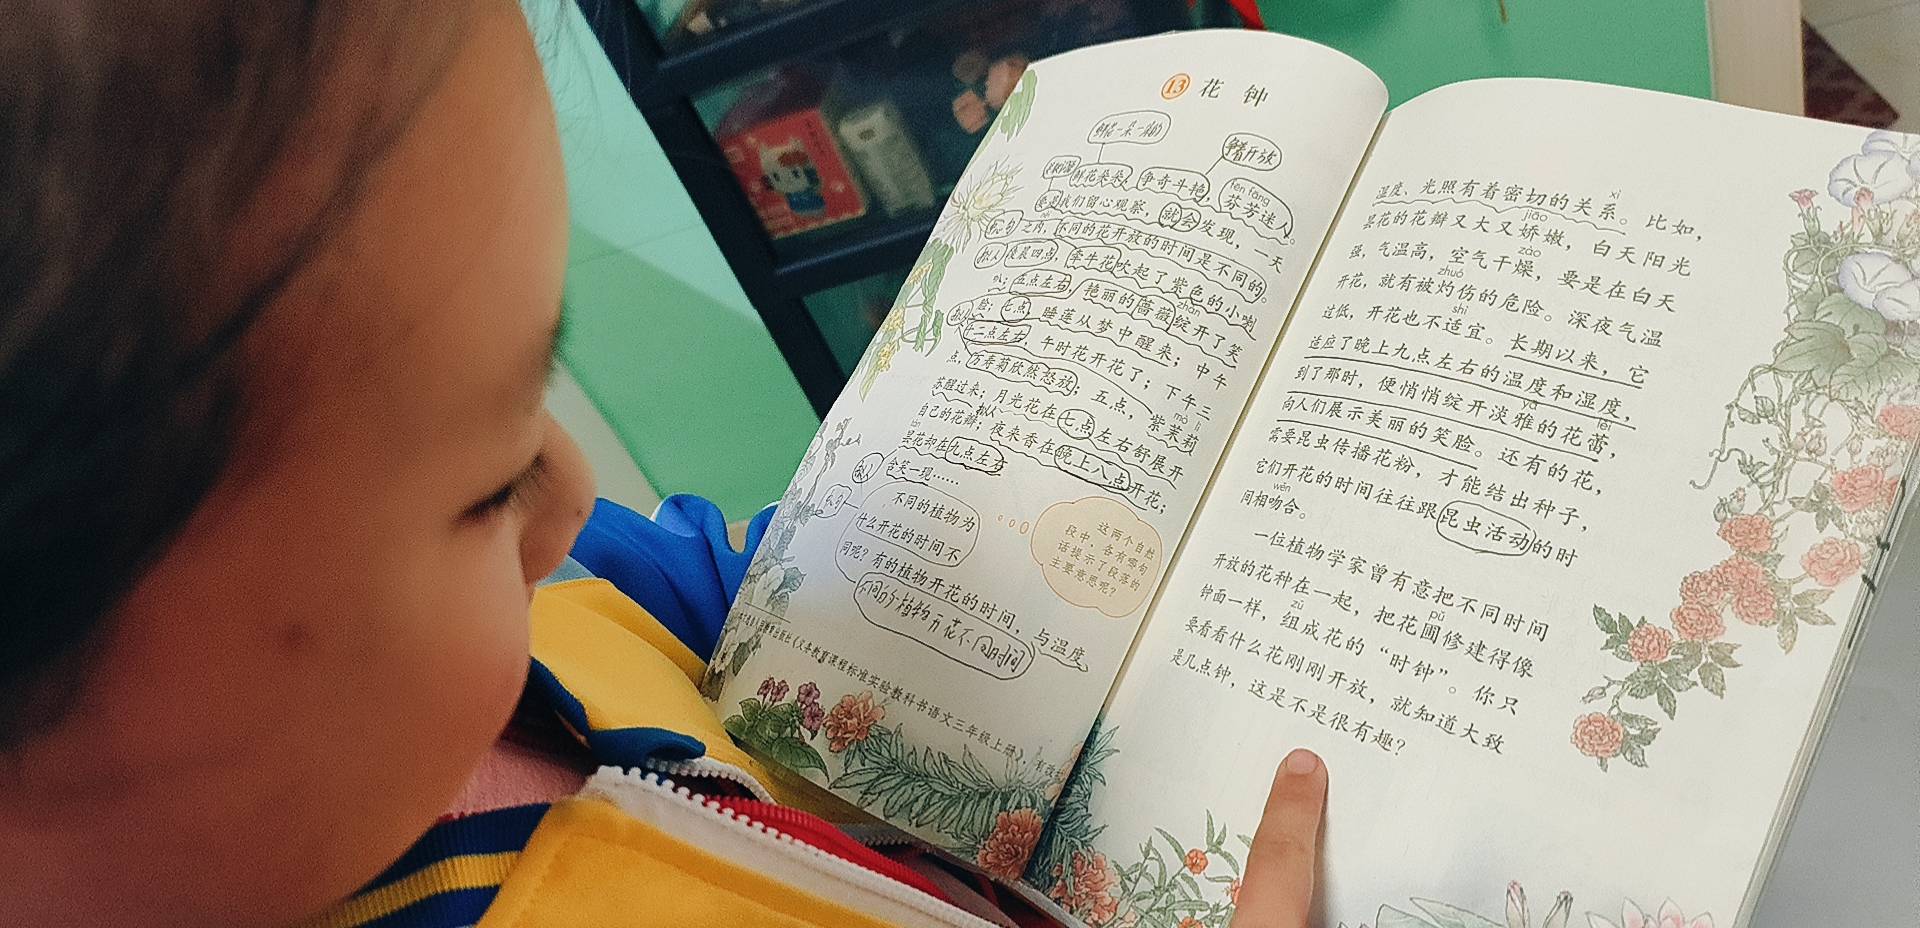 13 花钟
鲜花一朵一朵的
争着开放
fēn fāng
鲜花朵朵，争奇斗艳，芬芳迷人。
要是我们留心观察，就会发现，一天
之内，不同的花开放的时间是不同的。
拟人
凌晨四点，牵牛花吹起了紫色的小喇
叭；五点左右，艳丽的蔷薇绽开了笑
zhàn
脸；七点，睡莲从梦中醒来；中午
十二点左右，午时花开花了；下午三
点，万寿菊欣然怒放；五点，紫茉莉
mò lì
苏醒过来；月光花在七点左右舒展开
拟人
自己的花瓣；夜来香在晚上八点开花；
tán
昙花却在九点左右
拟人
含笑一现……
不同的植物为
什么开花的时间不
同呢？有的植物开花的时间，与温度、
不同的植物开花不同时间
这两个自然
段中，各有哪句
话提示了段落的
主要意思呢？
xì
湿度、光照有着密切的关系。比如，
jiāo
昙花的花瓣又大又娇嫩，白天阳光
zào
强，气温高，空气干燥，要是在白天
zhuó
开花，就有被灼伤的危险。深夜气温
shì
过低，开花也不适宜。长期以来，它
适应了晚上九点左右的温度和湿度，
yǎ lěi
到了那时，便悄悄绽开淡雅的花蕾，
向人们展示美丽的笑脸。还有的花，
需要昆虫传播花粉，才能结出种子，
它们开花的时间往往跟昆虫活动的时
wěn
间相吻合。
一位植物学家曾有意把不同时间
pǔ
开放的花种在一起，把花圃修建得像
zǔ
钟面一样，组成花的“时钟”。你只
要看看什么花刚刚开放，就知道大致
是几点钟，这是不是很有趣？